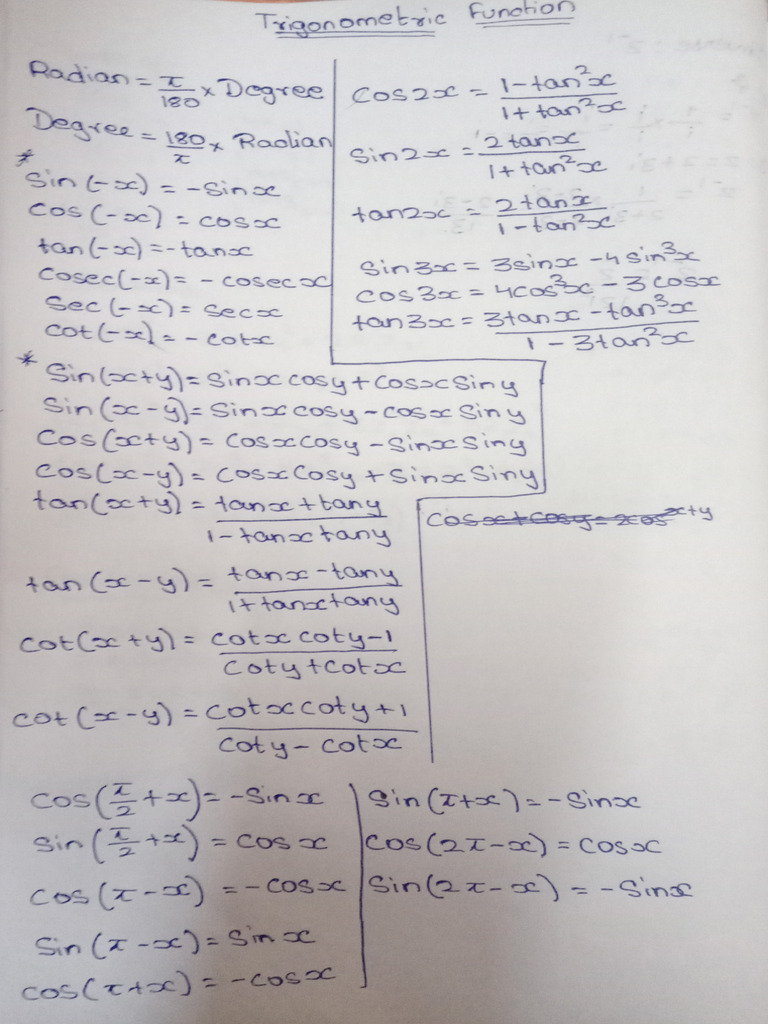 Trigonometric Function
Radian = π/180 × Degree
Degree = 180/π × Radian
* Sin(-x) = -Sinx
Cos(-x) = cosx
tan(-x) = -tanx
Cosec(-x) = - cosecx
Sec(-x) = Secx
Cot(-x) = - cotx
Cos2x = 1-tan²x/1+tan²x
Sin2x = 2tanx/1+tan²x
tan2x = 2tanx/1-tan²x
Sin3x = 3Sinx - 4Sin³x
Cos3x = 4cos³x - 3Cosx
tan3x = 3tanx - tan³x/1 - 3tan²x
* Sin(x+y) = Sinx cosy + Cosx Siny
Sin(x-y) = Sinx cosy - cosx Siny
Cos(x+y) = Cosx cosy - Sinx Siny
Cos(x-y) = Cosx Cosy + Sinx Siny
tan(x+y) = tanx + tany/1 - tanx tany
tan(x-y) = tanx - tany/1 + tanx tany
Cot(x+y) = Cotx coty - 1/Coty + Cotx
cot(x-y) = Cotx coty + 1/Coty - Cotx
Cosx + Cosy = 2cos x+y
Cos(π/2 + x) = -Sinx
Sin(π/2 + x) = Cosx
Cos(π - x) = -Cosx
Sin(π - x) = Sinx
Cos(π + x) = -Cosx
Sin(π+x) = -Sinx
Cos(2π - x) = Cosx
Sin(2π - x) = -Sinx